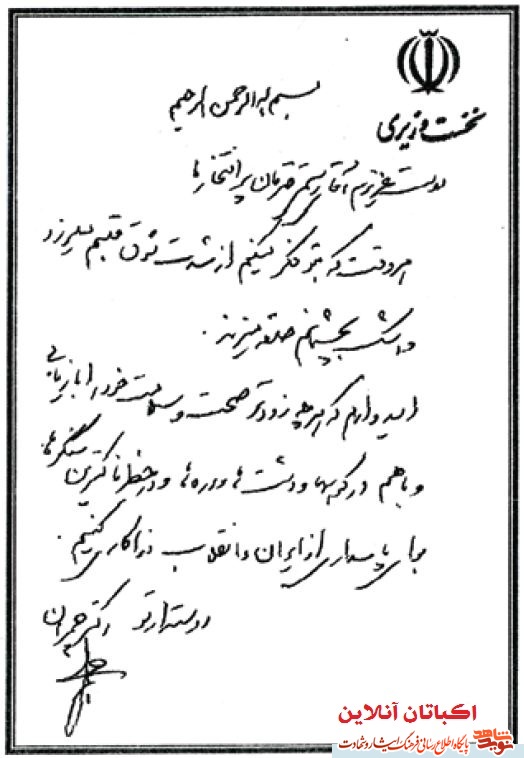 بسم الله الرحمن الرحیم
نخست وزیری
دوست عزیزم آقای رستمی قهرمان پر افتخار ما
هر وقت که بتو فکر میکنم از شدت شوق قلبم میلرزد
و اشک بچشمانم حلقه میزند.
امیدوارم که هرچه زودتر صحت و سلامت خود را بازیابی
و باهم در کوهها و دشت ها و دره ها و در خطرناکترین سنگرها
برای پاسداری از ایران و انقلاب فداکاری کنیم.
دوستدار تو دکتر چمران
اکباتان آنلاین
نوید شاهد
پایگاه اطلاع رسانی فرهنگ ایثار و شهادت